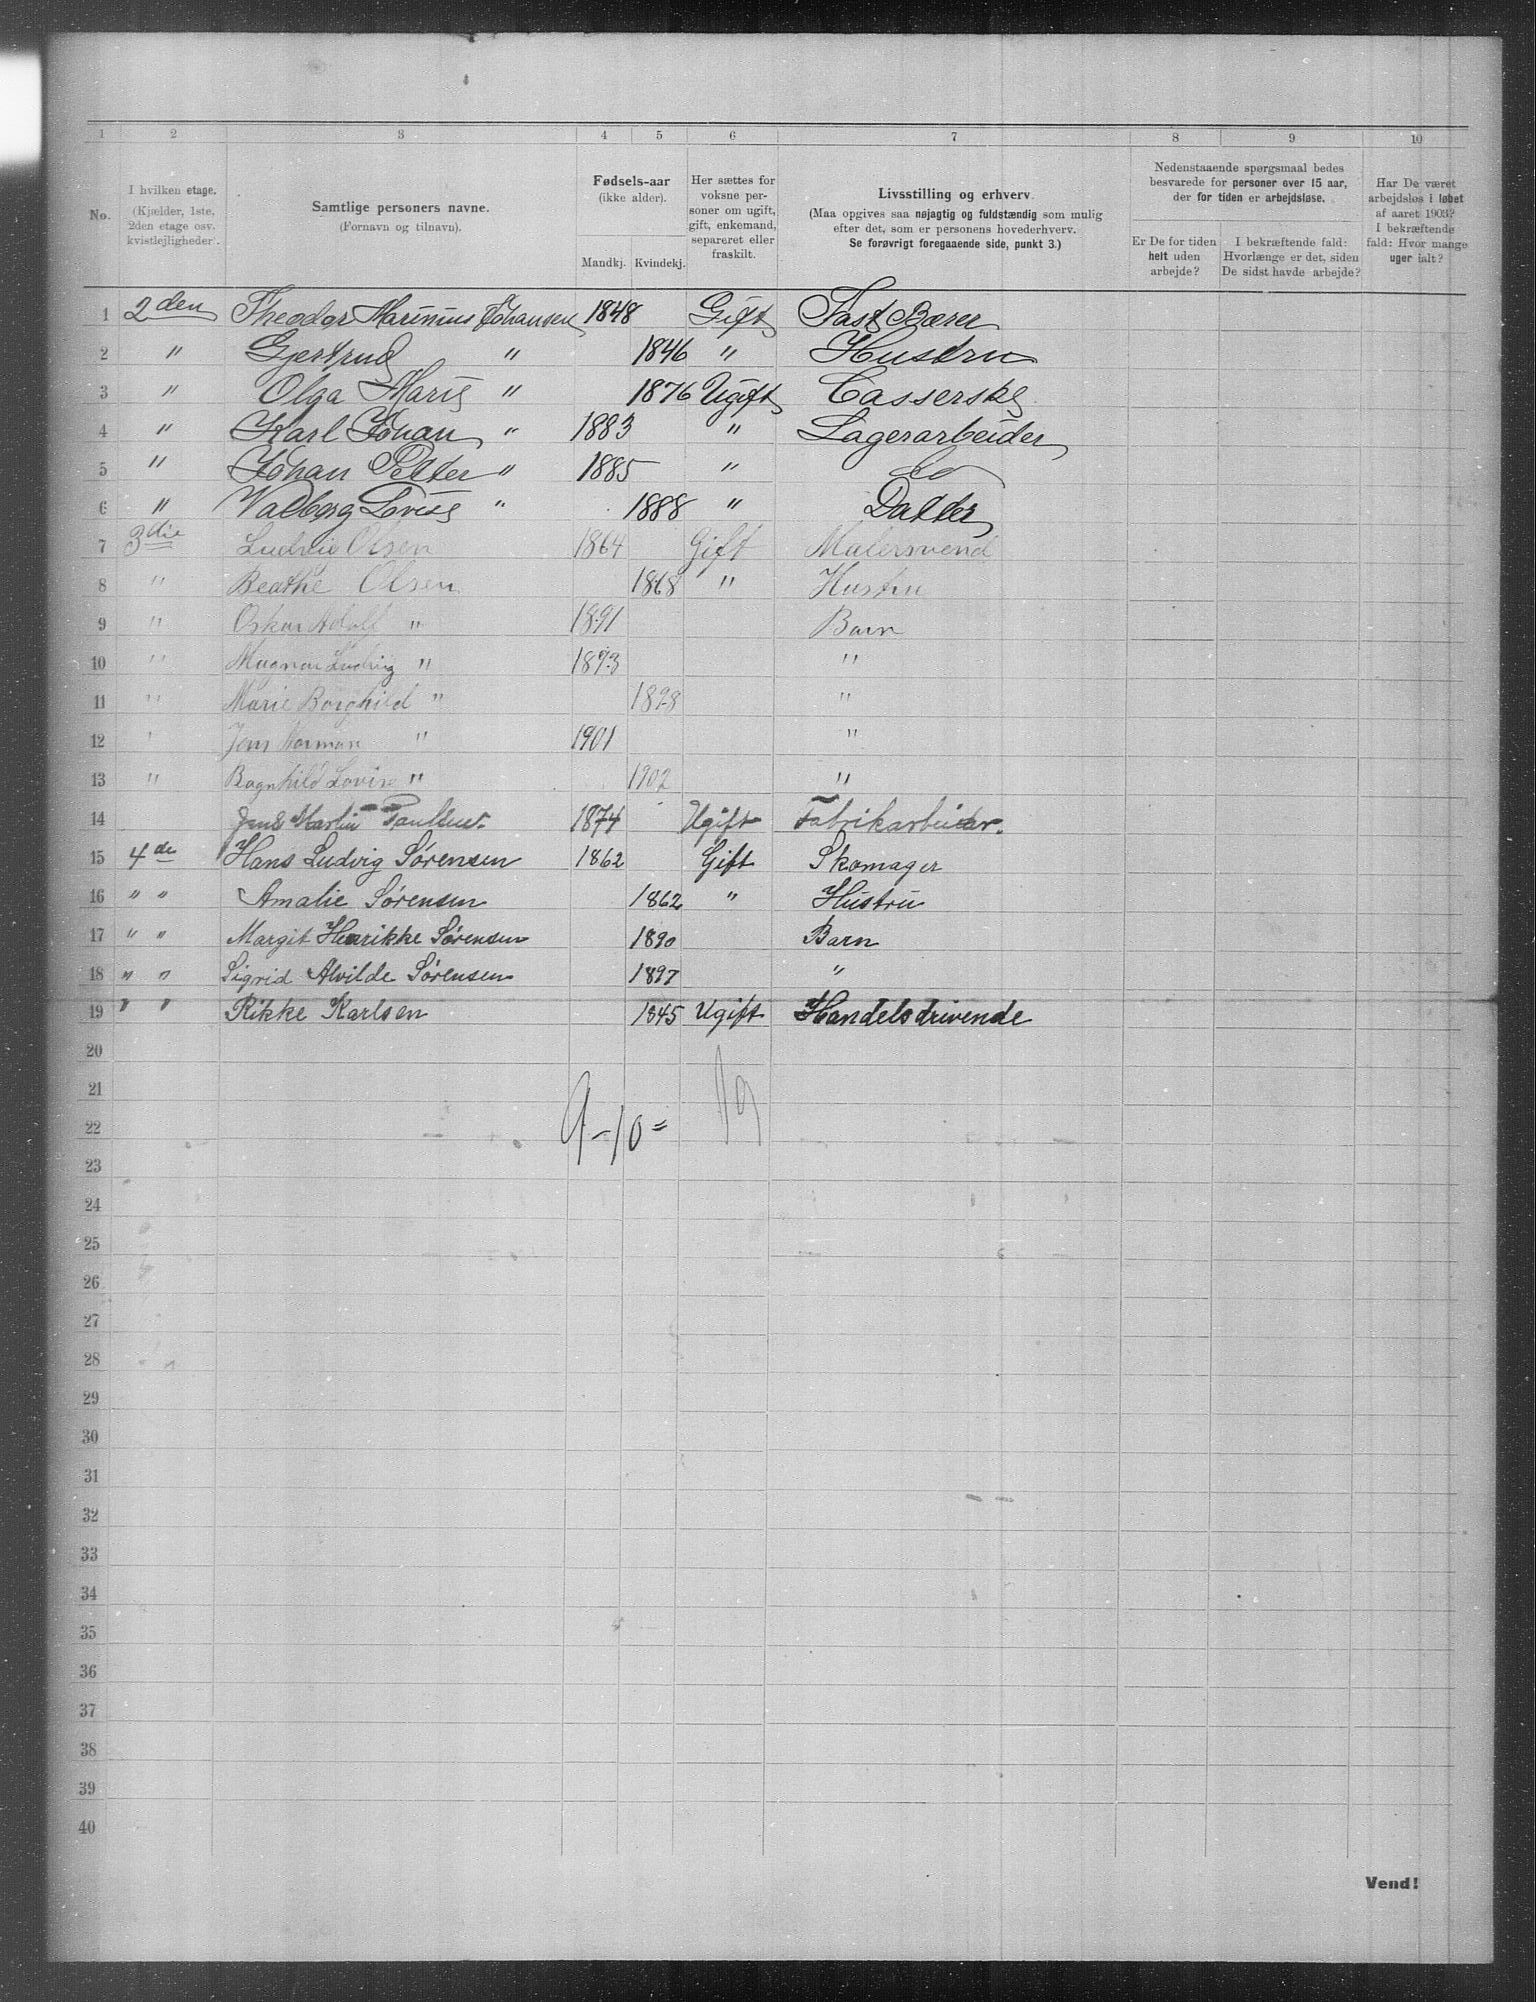 1 2 3 4 5 6 7 8 9 10
No.
I hvilken etage. (Kjælder, 1ste, 2den etage osv. kvistlejligheder).
Samtlige personers navne. (Fornavn og tilnavn).
Fødsels-aar (ikke alder).
Mandkj. Kvindekj.
Her sættes for voksne personer om ugift, gift, enkemand, separeret eller fraskilt.
Livsstilling og erhverv. (Maa opgives saa nøjagtig og fuldstændig som mulig efter det, som er personens hovederhverv. Se forøvrigt foregaaende side, punkt 3.)
Nedenstaaende spørgsmaal bedes besvarede for personer over 15 aar, der for tiden er arbejdsløse.
Er De for tiden helt uden arbejde?
I bekræftende fald: Hvorlænge er det, siden De sidst havde arbejde?
Har De været arbejdsløs i løbet af aaret 1903? I bekræftende fald: Hvor mange uger ialt?
1 2den Theodor Marinius Johansen 1848 Gift Fast Bærer
2 " Gjertrud " 1846 " Hustru
3 " Olga Marie " 1876 Ugift Casserske
4 " Karl Johan " 1883 " Lagerarbeider
5 " Johan Petter " 1885 " Do
6 " Valborg Lovise " 1888 " Datter
7 3die Ludvig Olsen 1864 Gift Malersvend
8 " Beathe Olsen 1868 " Hustru
9 " Oskar Adolf " 1891 Barn
10 " Magnar Ludvig " 1893 "
11 " Marie Borghild " 1898 "
12 " Jens Norman " 1901 "
13 " Ragnhild Lovise " 1902 "
14 Jens Martin Paulsen 1874 Ugift Fabrikarbeider.
15 4de Hans Ludvig Sørensen 1862 Gift Skomager
16 " " Amalie Sørensen 1862 " Hustru
17 " " Margit Henrikke Sørensen 1890 Barn
18 " " Sigrid Alvilde Sørensen 1897 "
19 " " Rikke Karlsen 1845 Ugift Handelsdrivende
20
21
9-10= 19
22
23
24
25
26
27
28
29
30
31
32
33
34
35
36
37
38
39
40
Vend!